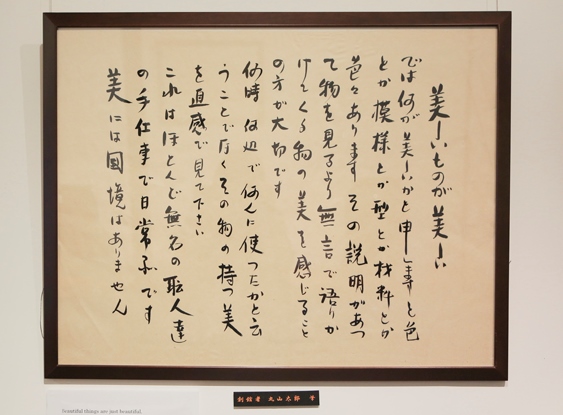 美しいものが美しい
では何が美しいかと申しますと色
とか模様とか型とか材料とか
色々あります その説明があつ
て物を見るより無言で語りか
けてくる物の美を感じること
の方が大切です
何時 何処で 何人に使つたかと云
うことでなくその物の持つ美
を直感で見て下さい
これはほとんど無名の職人達
の手仕事で日常品です
美には国境はありません
創館者 北山太郎
beautiful things are just beautiful.